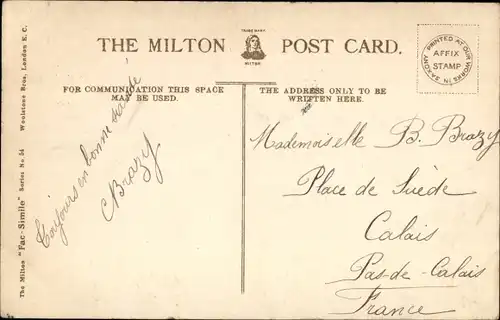 THE MILTON POST CARD.
TRADE MARK
MILTON
FOR COMMUNICATION THIS SPACE
MAY BE USED.
THE ADDRESS ONLY TO BE
WRITTEN HERE.
PRINTED AT OUR WORKS
AFFIX
STAMP
IN SAXONY
The Milton "Fac-Simile" Series No 54 Woolstone Bros, London E. C.
Toujours en bonne santé
CBrazy
Mademoiselle B. Brazy
Place de Suède
Calais
Pas-de-Calais
France